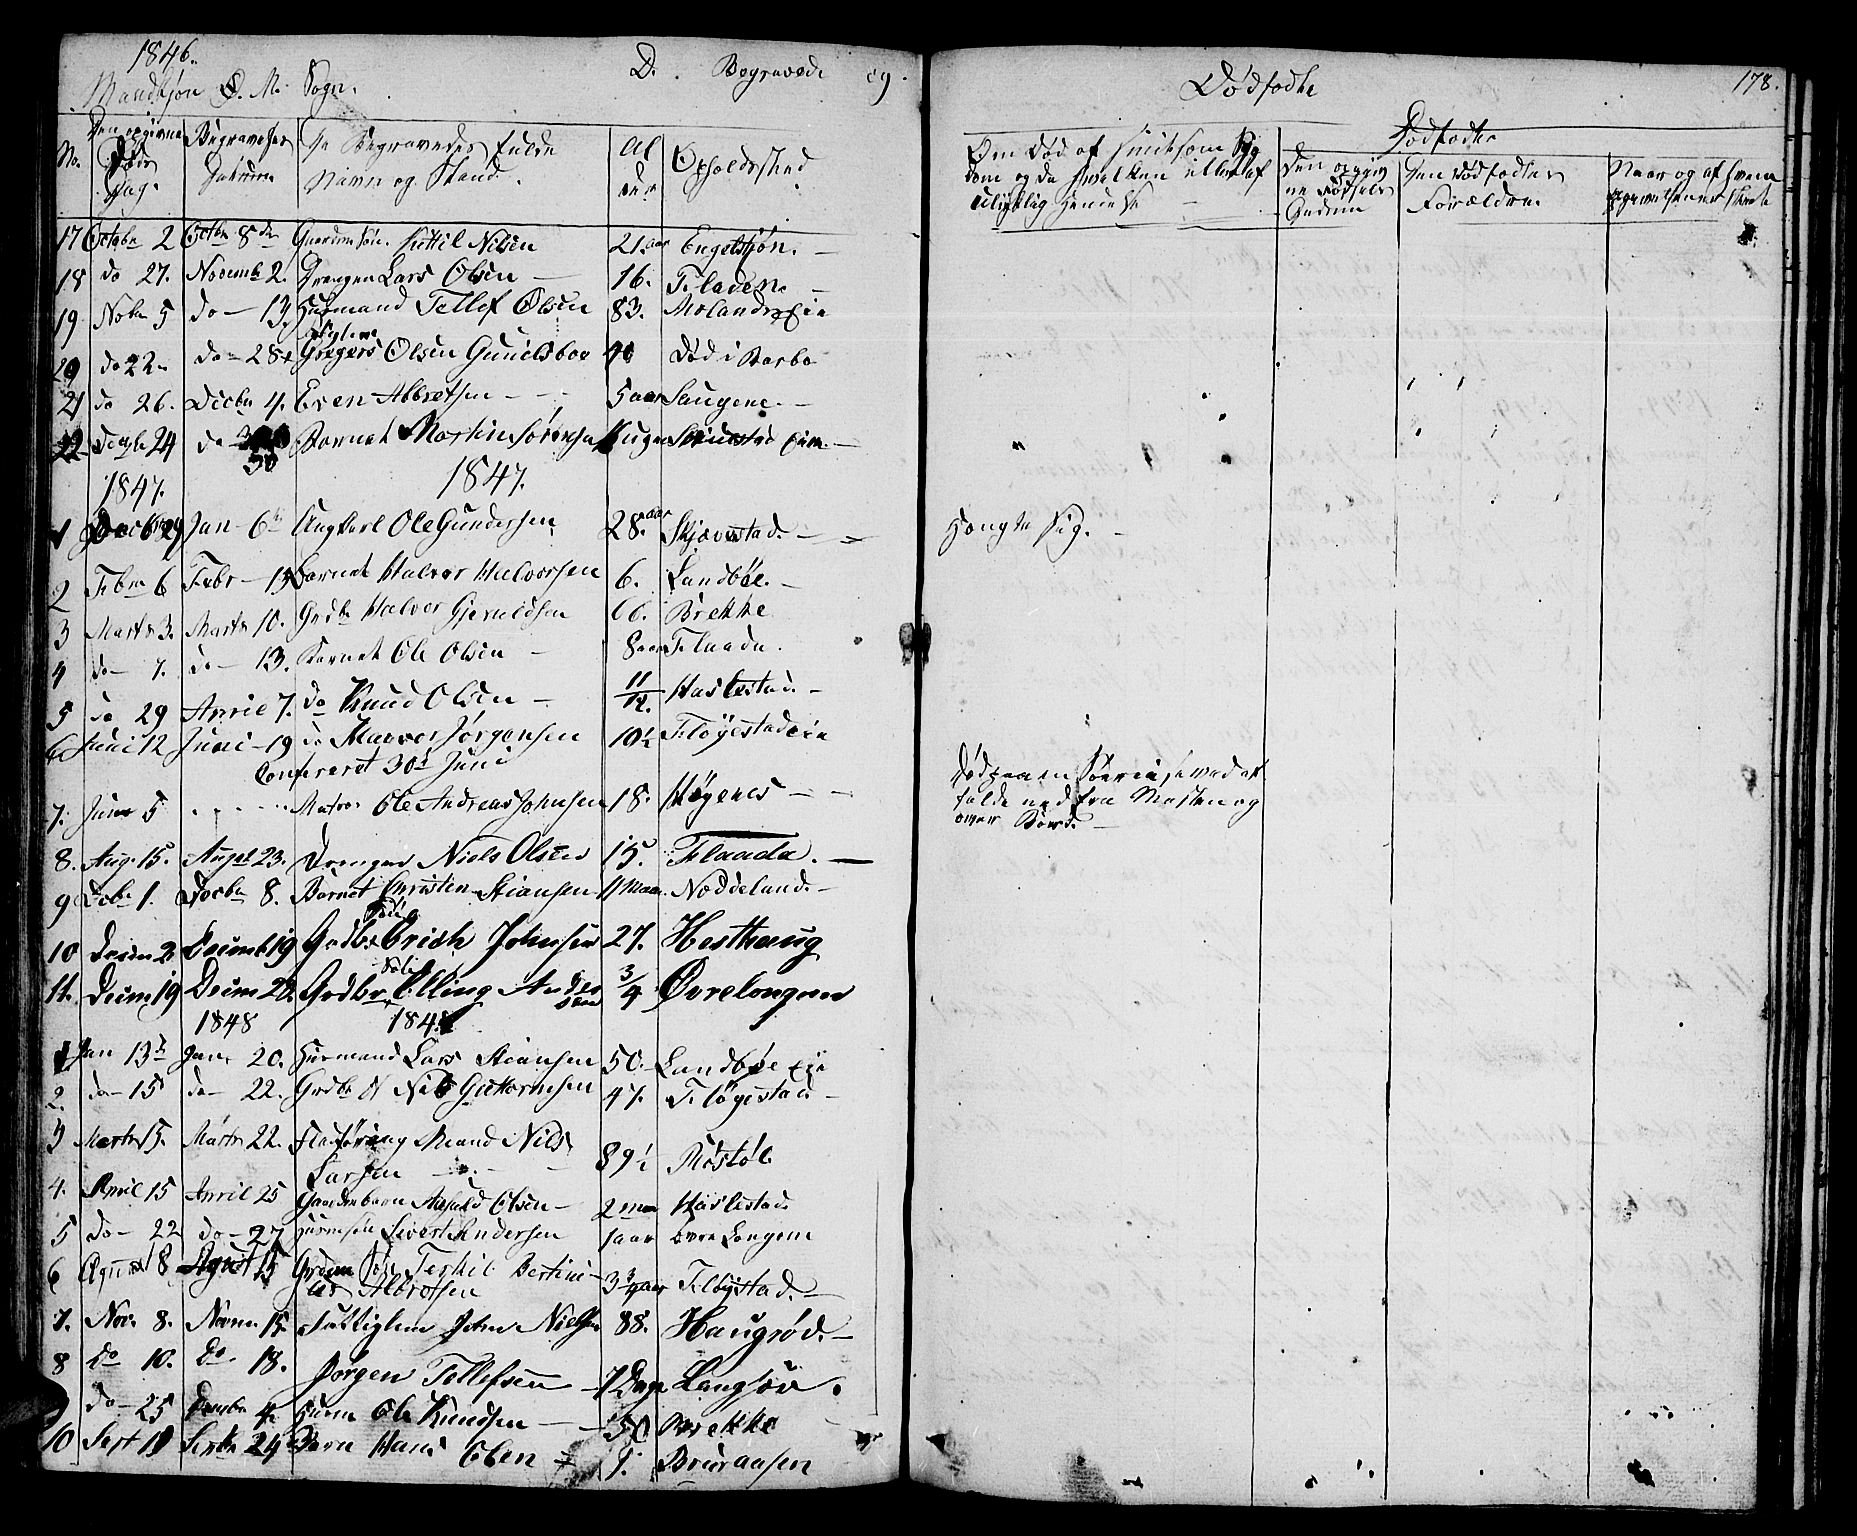 1846.
Mandkjøn Ø. M. Sogn. D. Begravede 89.
No. Den opgivne Døds Dag. Begravelses Datum De Begravedes fulde Navn og Stand. Alder Opholdssted
17 Octobr 2 Octbr 8de Gaardm Søn. Kittil Nilsen 21. aar Engelstjøn.
18 do 27. Novembr 2. Drengen Lars Olsen 16. Fladen.
19. Nobr 5 do 13 Huusmand Tellef Olsen 83. Molands Eie
20 do 22 do 28 Gregers Olsen Gunilsboe 40 død i Barbo
21 do 26. Decbr 4. Even Albretsen 5 aar Saugene.
22 Decbr 24 do 30 Barnet Martin Sørensen Uger Eie.
1847. 1847.
1 Decbr 29 Jan 6te Ungkarl Ole Gundersen 28. aar Skjævestad.
2 Febr 6 Febr 15 Barnet Halvor Halvorsen 6. Landbøe.
3 Marts 3. Marts 10. Grdbr Halvor Gjeruldsen 66. Brekke
4 do 7. do 13. Barnet Ole Olsen 8 aar Flaada.
5 do 29 April 7. do Knud Olsen 11/12. Haslestad.
6 Juni 12 Juni 19 do Halvor Jørgensen 10½ Fløyestad eie
Confereret 30t Juni
7. Juni 5 Matros Ole Andreas Johnsen 18. Høgenes
8. Aug. 15. Augst 23. Drengen Niels Olsen 15. Flaada.
9 Decbr 1. Decbr 8. Barnet Christen Stiansen 11 Maan. Nøddeland.
10 Decem 2 Decembr 19 Grdbr Søn Erich Johnsen 27. Hesthaug
11. Decim 19 Decim 28. Grdbr Søn Elling Andersen 3/4 Øvrelongum
1848 1848
1 Jan 13de Jan 20. Huusmand Lars Stiansen 50. Landbøe Eie
2. do 15 do 22. Grdbr Nils Guttormsen 47. Fløyestad.
3 Marts 15. Marts 22. Fladføring Mand Nils
Larsen 89½ Røstøl
4. April 15 April 25 Gaardm barn Olsen 2 maan Haslestad.
5 do 22 do 27 Huusm søn Sivert Andersen 1 aar Øvre Longum
6 August 8 August 15 Grdm Søn Terkil Bertini-
us Albretsen 3¾ aar Fløystad.
7. Nov. 8. Novm 15 Fattiglem John Nielsen 88. Haugrød.
8 do 10. do 18. Jørgen Tellefsen 7 Dage Langsæv.
do 25 Decmbr 4 Huusm Ole Knudsen 50 Brekke
10 Sept 19 Septbr 24 Barn Hans Olsen 9. Bruraasen
Dødfødte 178.
Om Død af smitsom Sygdom og da hvilken eller af ulykkelig Hændelse
Dødfødte
Den opgivne Fødsels Datum Den Dødfødtes Forældre. Naar og af hvem
Hængte sig.
Død paa en Søereise ved at
falde ned fra Masten og
over Bord.